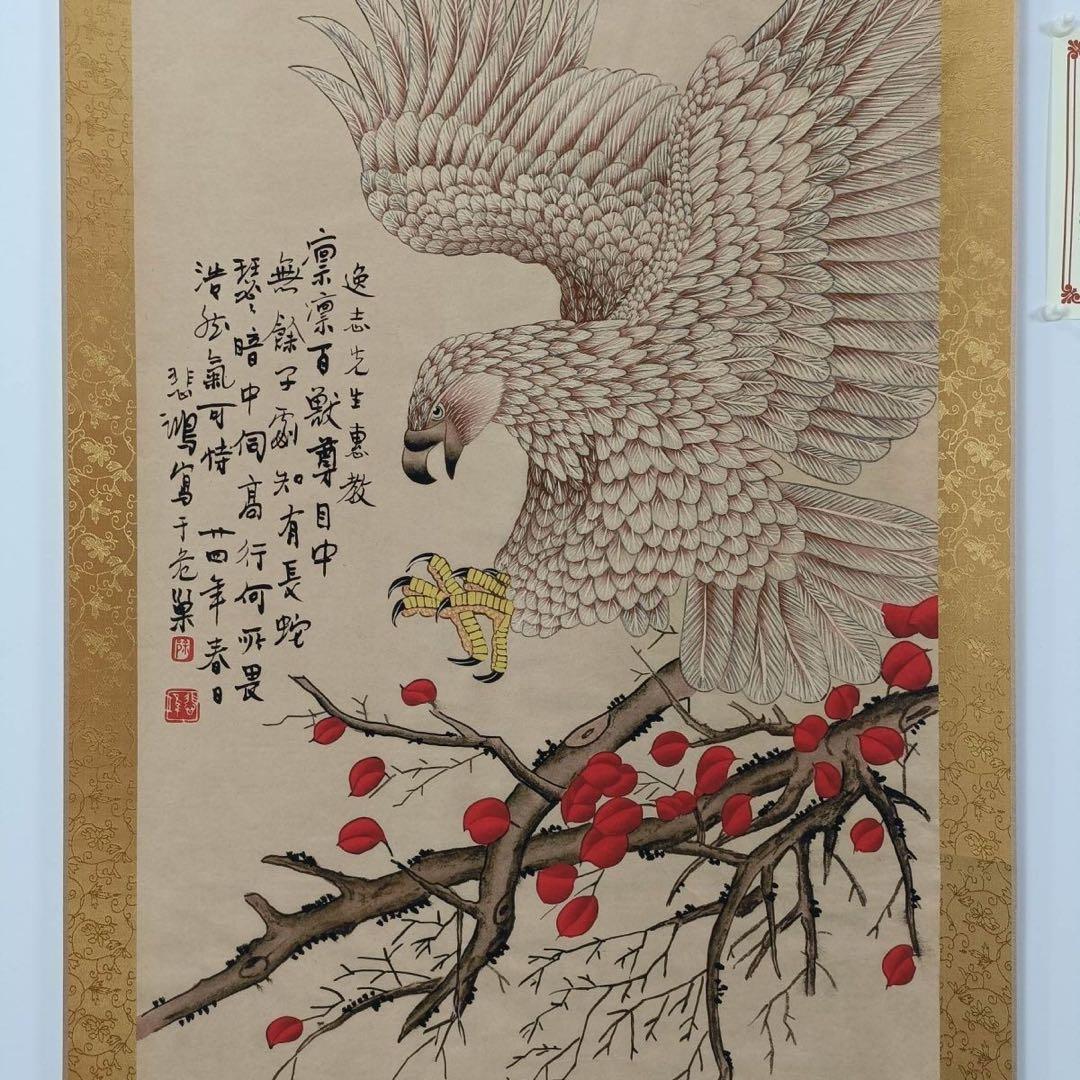 逸志先生惠教
凛凛百獸尊目中
無餘子劇知有長蛇
瑟瑟暗中伺高行何所畏
浩然氣可恃 廿四年春日
悲鴻寫于危巢